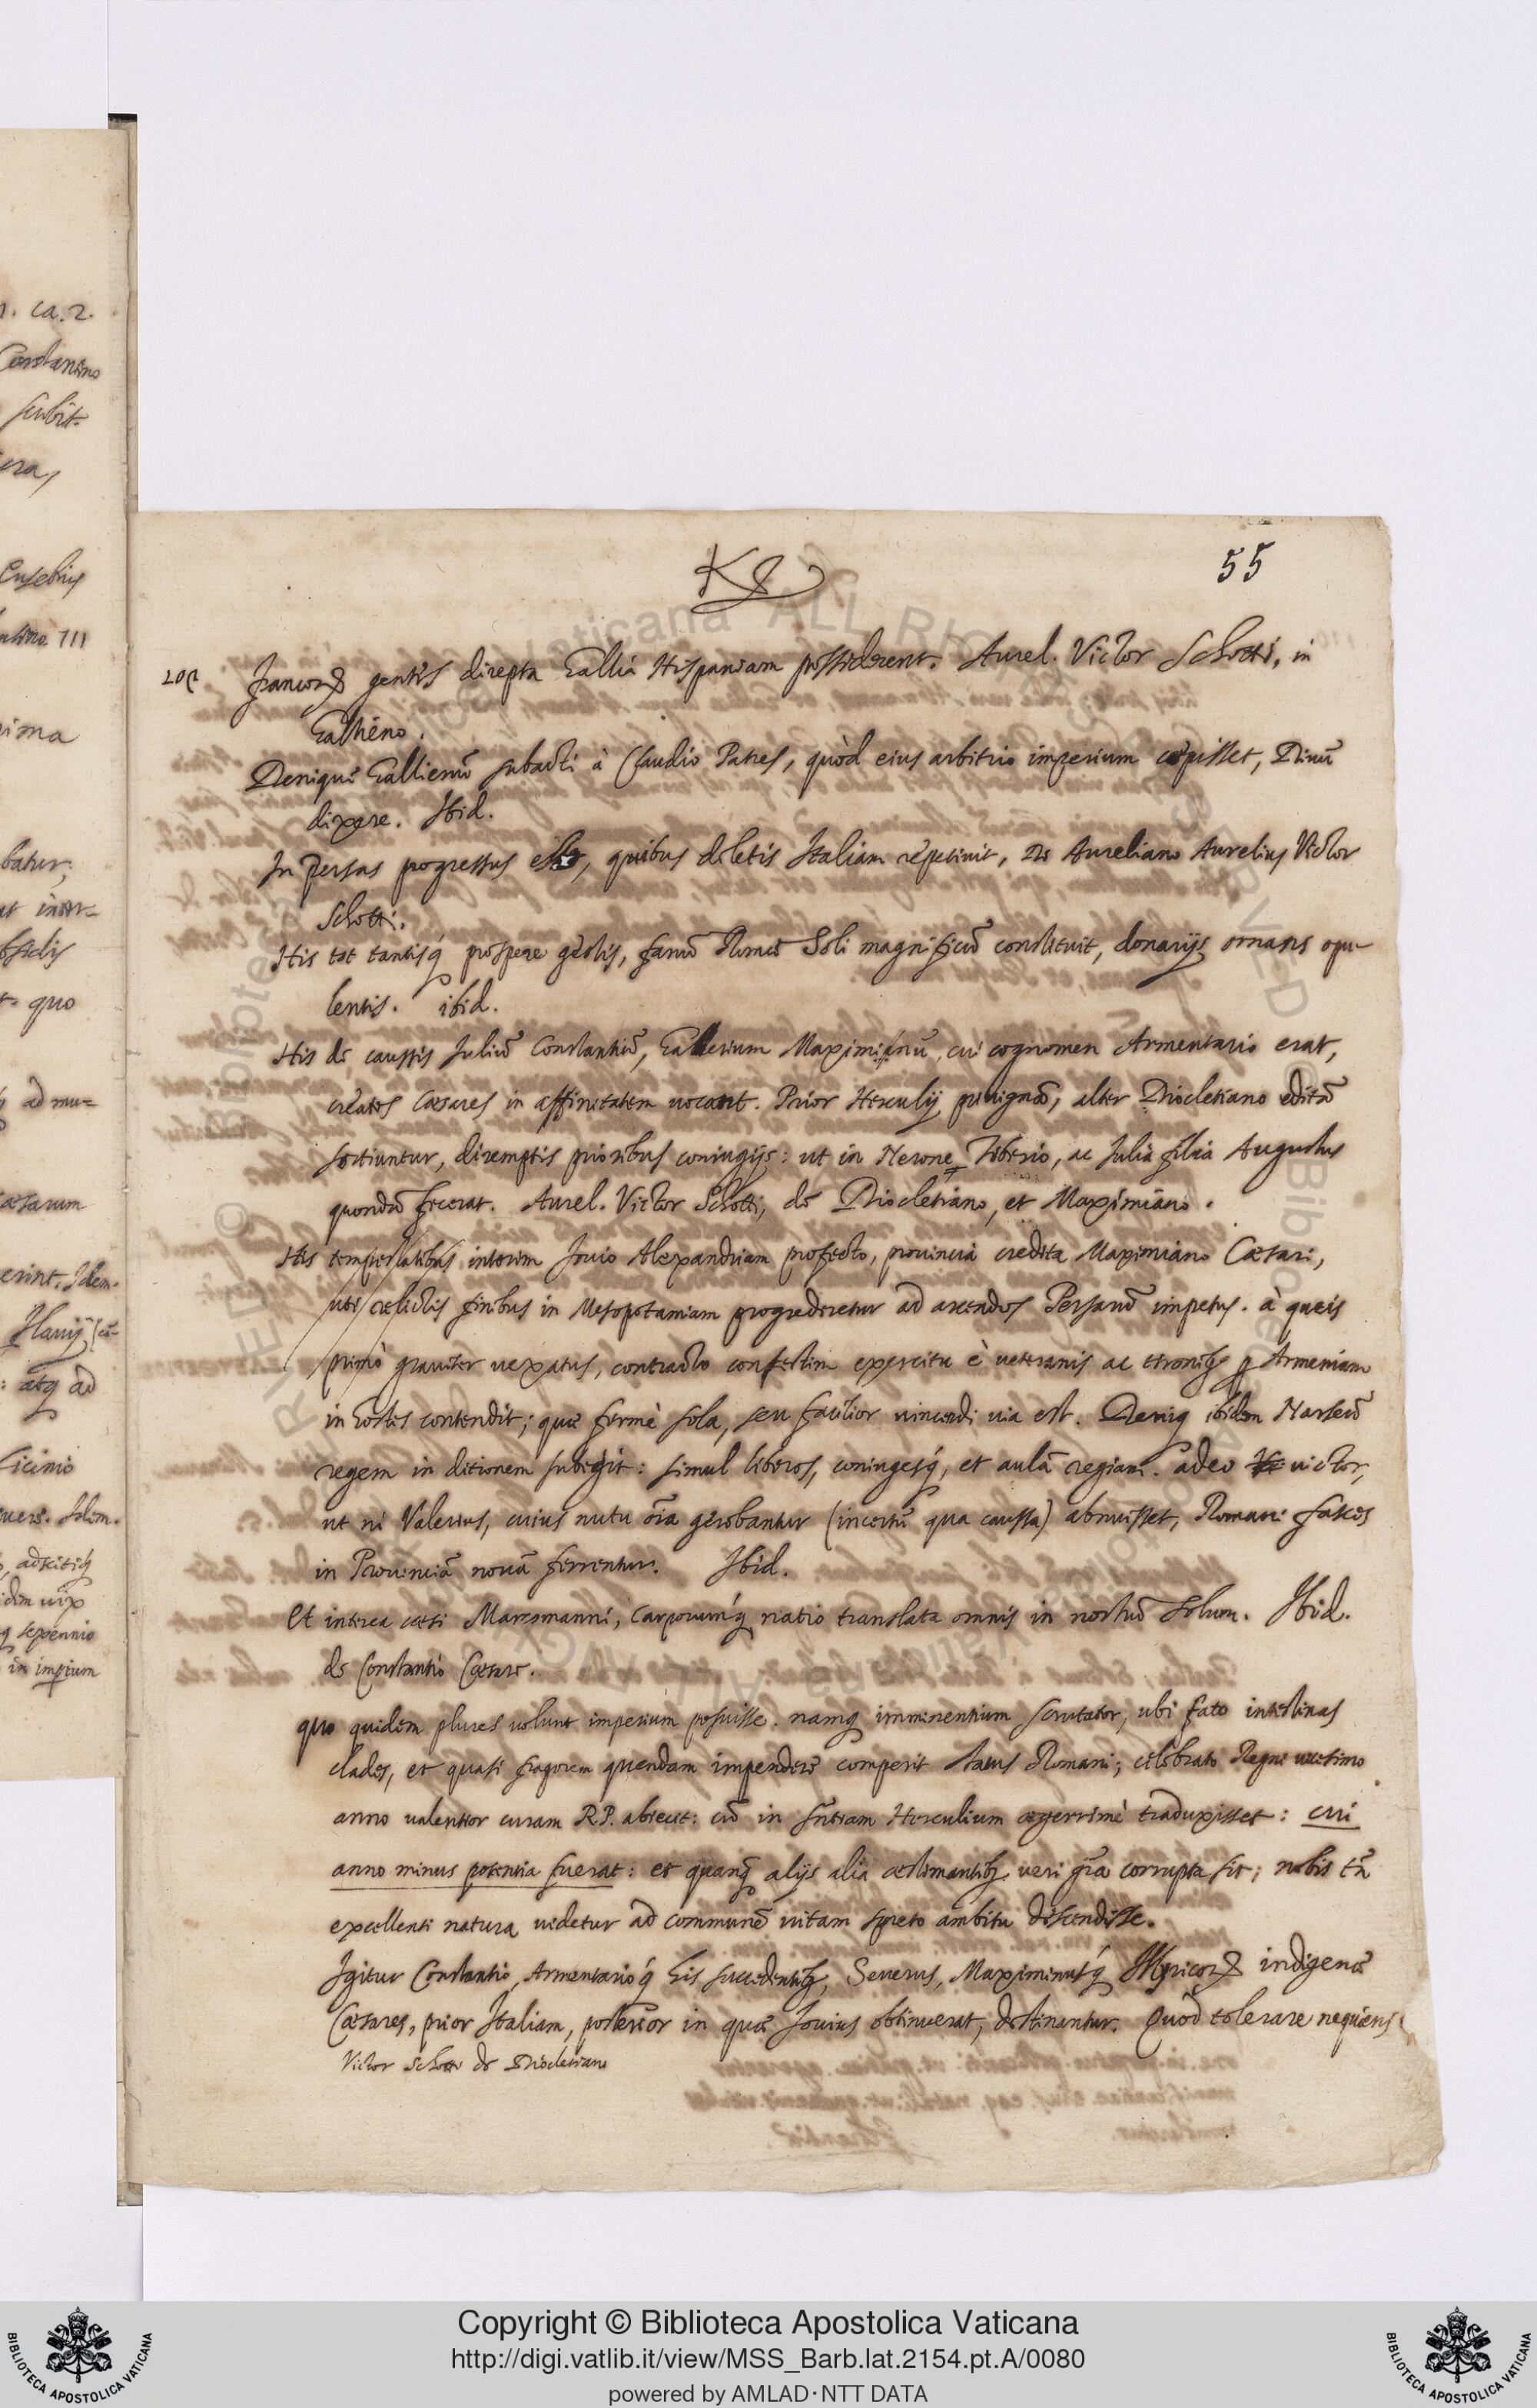 n. ca. 2.
Constantino
scribit.
era,
Eusebius
III
ima
batur,
ut inter-
bsidijs
t. quo
ad mu=
aesarum
erint. Idem.
Flauij
: atq ad
Licinio
Idem.
adscitiq
idem uix
q sexennio
in imperium
K&
55
Francorꝝ gentes direpta Gallia Hispaniam possiderent. Aurel. Victor Schotti, in
Gallieno.
Deniquè Gallienũ subacti à Claudio Patres, quòd eius arbitrio imperium cœpisset, Diuũ
dixere. Ibid.
In Persas progressus est, quibus deletis Italiam repetiuit, de Aureliano Aurelius Victor
Schotti.
His tot tantisq́ prospere gestis, fanũ Romæ Soli magnificũ constituit, donarijs ornans opu-
lentis. ibid.
His de caussis Juliũ Constantiũ, Gallerium Maximianũ, cui cognomen Armentario erat,
creatos Cæsares in affinitatem uocant. Prior Herculij priuignã, alter Diocletiano editã
sortiuntur, diremptis prioribus coniugijs: ut in Nerone Tiberio, ac Julia filia Augustus
quondã fecerat. Aurel. Victor Schotti, de Diocletiano, et Maximiano.
His tempestatibus interim Jouio Alexandriam profecto, prouincia credita Maximiano Cæsari,
uti relictis finibus in Mesopotamiam progrederetur ad arcendos Persarũ impetus. à queis
primò grauiter uexatus, contracto confestim exercitu è ueteranis ac tironibꝫ ꝑ Armeniam
in hostes contendit; quæ fermè sola, seu facilior uincendi uia est. Deniq ibidem Narseũ
regem in ditionem subegit: simul liberos, coniugesq́, et aulã regiam. adeo uictor,
ut ni Valerius, cuius nutu oĩa gerebantur (incertũ qua caussa) abnuisset, Romani fasces
in Prouinciã nouã ferrentur. Ibid.
Et interea cæsi Marcomanni, Carporumq́ natio translata omnis in nostrũ solum. Ibid.
de Constantio Cæsare.
quo quidem plures uolunt imperium posuisse. namq imminentium scrutator, ubi fato intestinas
clades, et quasi fragorem quendam impendere comperit status Romani; celebrato Regni uicesimo
anno ualentior curam R.P. abiecit: cũ in sñtiam Herculium ægerrimè traduxisset: cui
anno minus potentia fuerat: et quanq̃ alijs alia æstimantibꝫ ueri grã corrupta sit; nobis tñ
excellenti natura uidetur ad communẽ uitam spreto ambitu descendisse.
Igitur Constantio, Armentarioq́ his succedentibꝫ, Seuerus, Maximinusq́ Illyricorꝝ indigenæ
Cæsares, prior Italiam, posterior in quæ Jouius obtinuerat, destinantur. Quod tolerare nequiens
Victor Schotti de Diocletiano
Copyright © Biblioteca Apostolica Vaticana
http://digi.vatlib.it/view/MSS_Barb.lat.2154.pt.A/0080
powered by AMLAD·NTT DATA
BIBLIOTECA APOSTOLICA VATICANA
BIBLIOTECA APOSTOLICA VATICANA